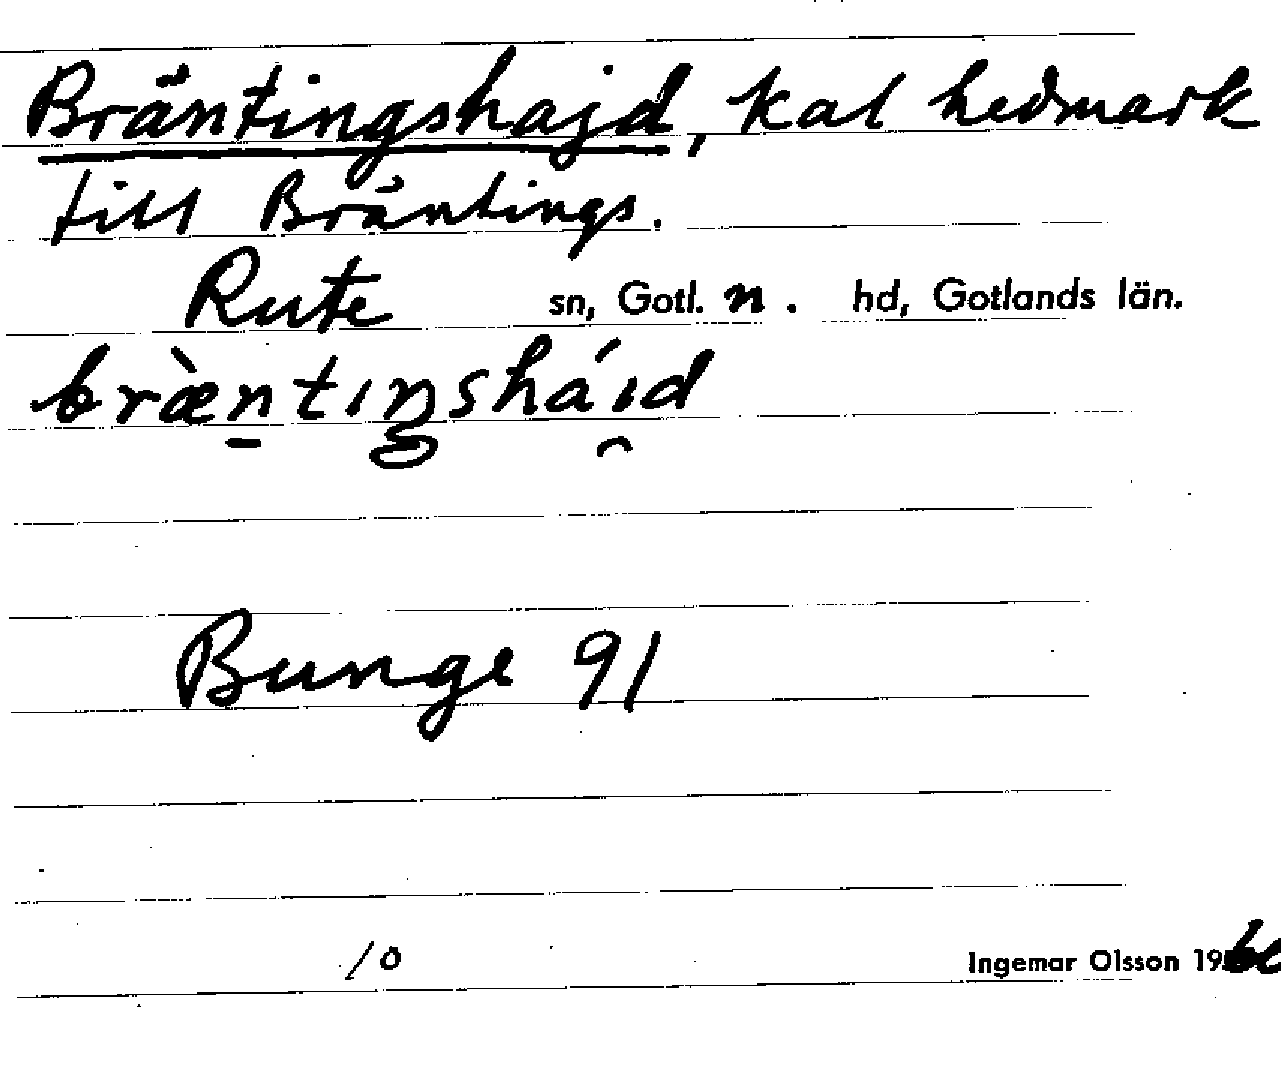 Bräntingshajd, kal hedmark
till Bräntings.
Rute sn, Gotl. n. hd, Gotlands län.
bræ̀ntiŋshái̯d
Bunge 91
/0 Ingemar Olsson 1960